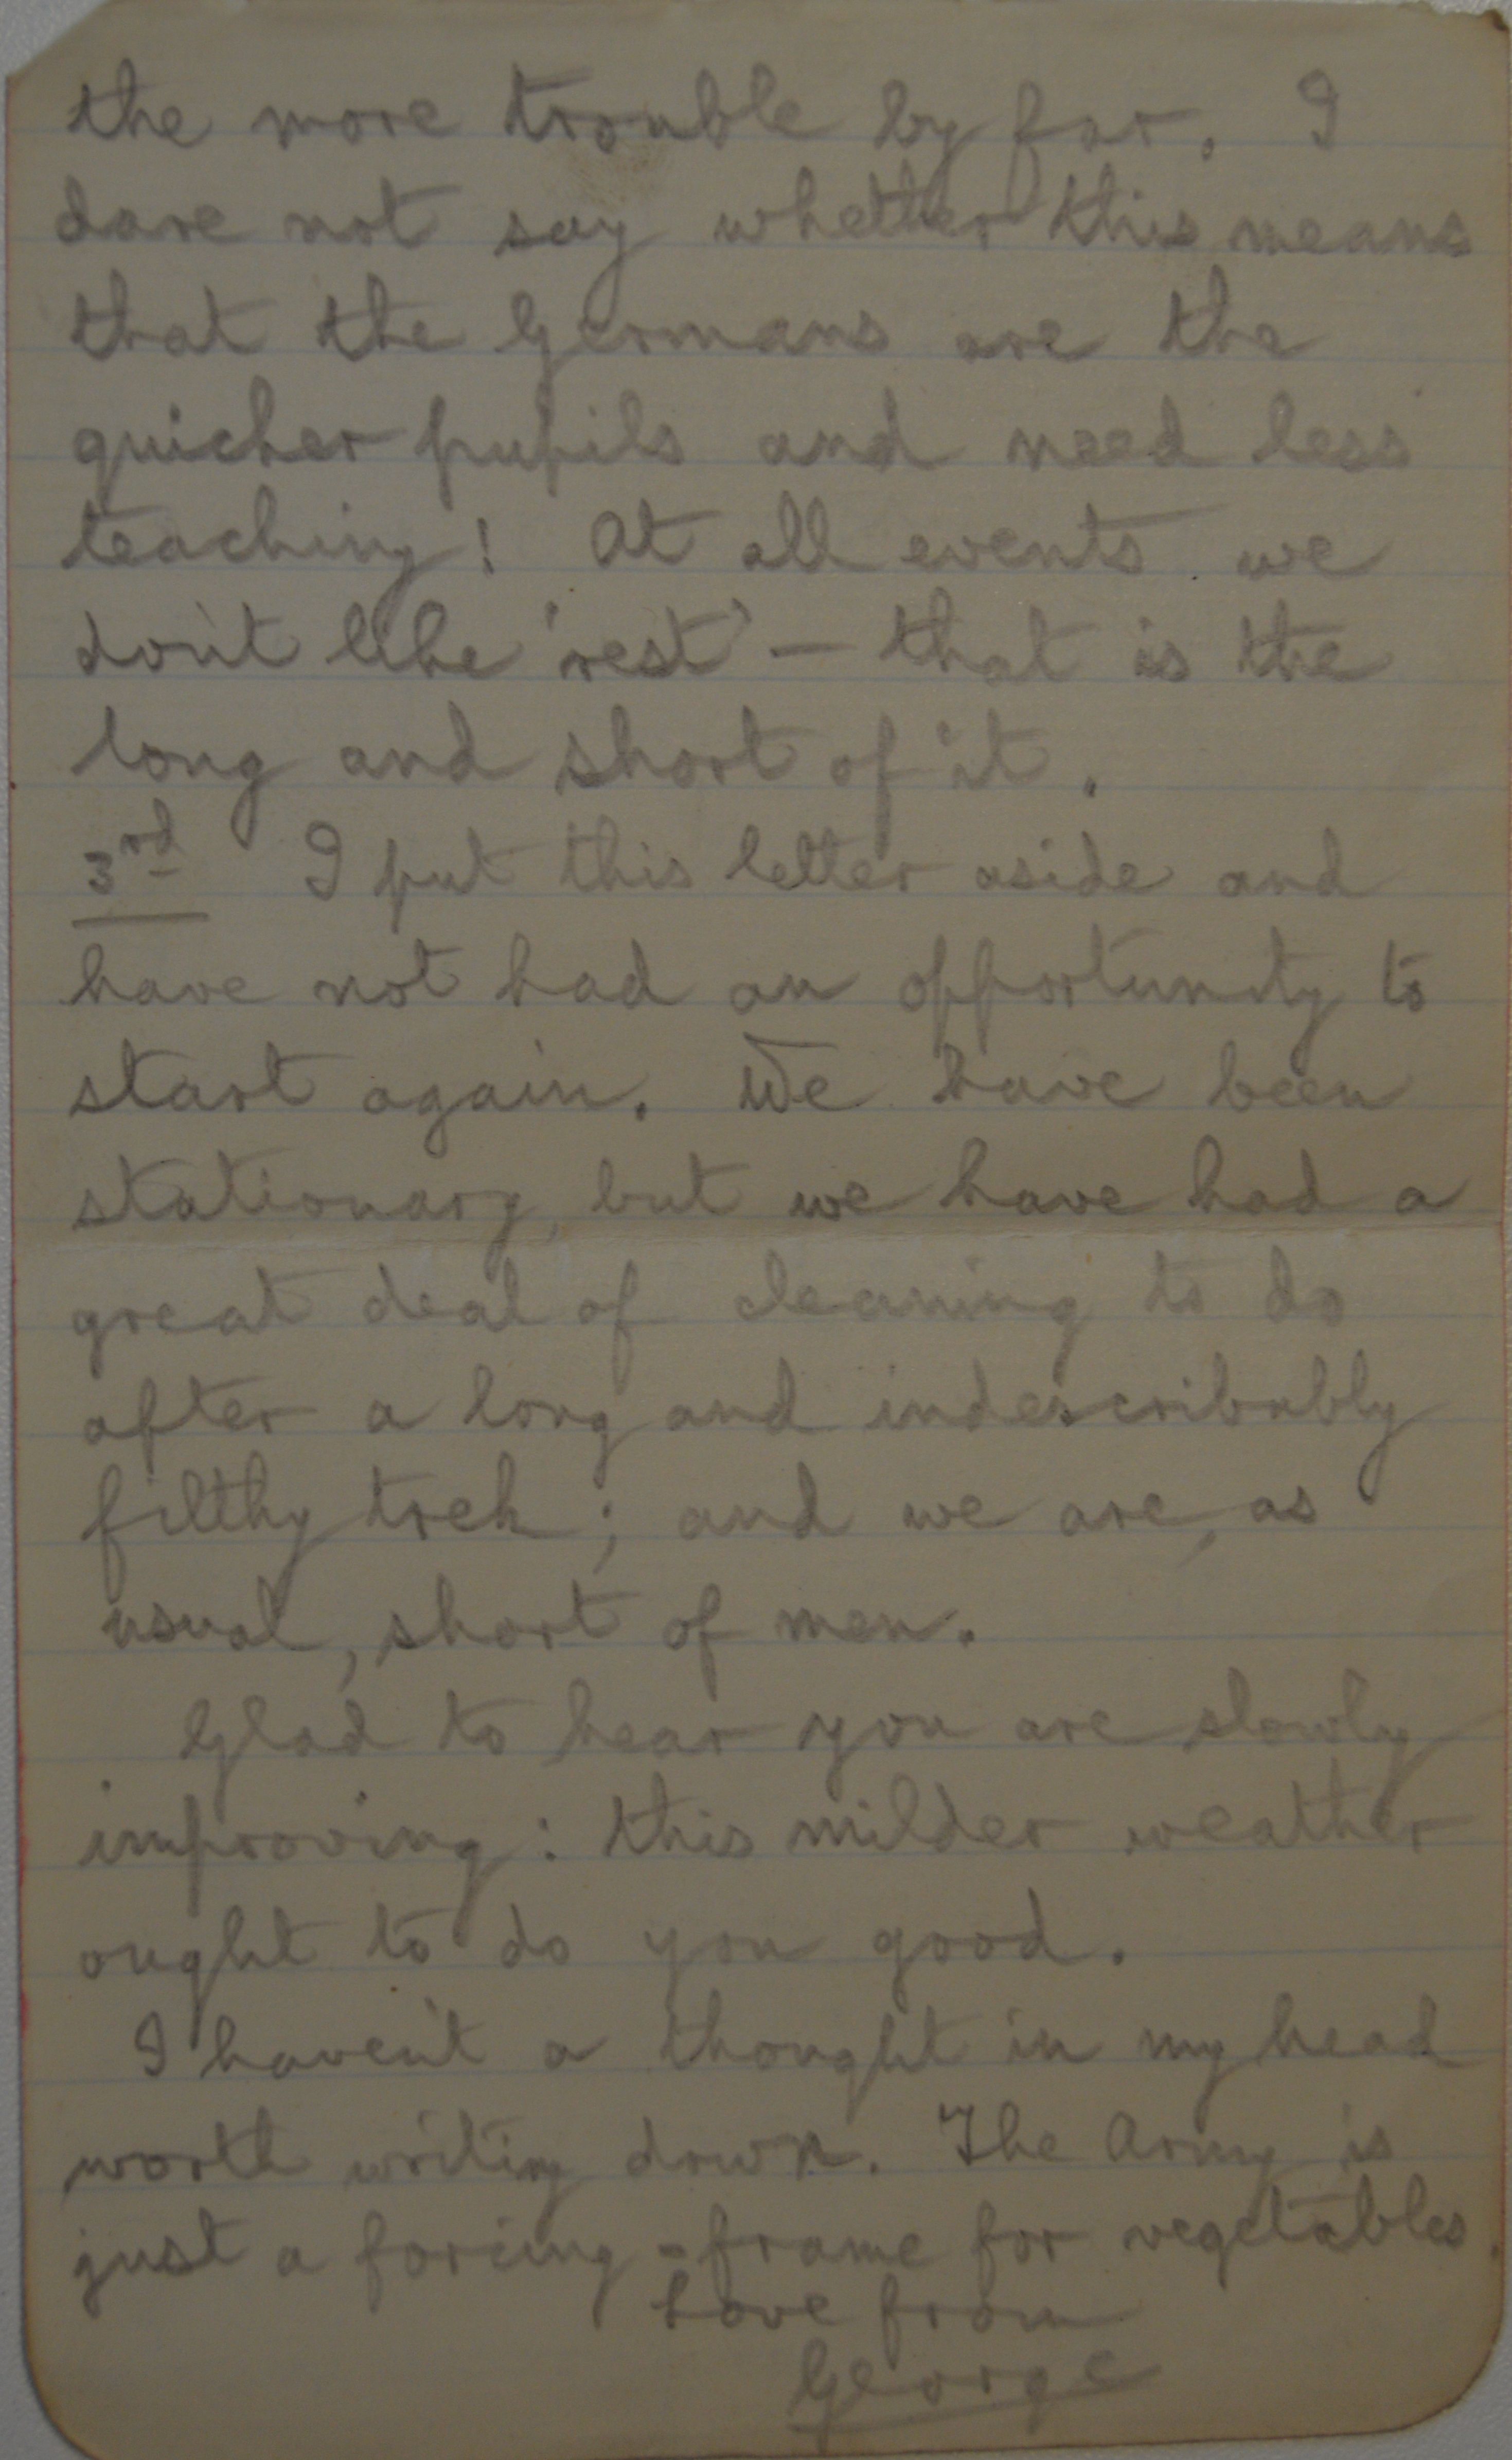 the more trouble by far. I
dare not say whether this means
that the Germans are the
quicker pupils and need less
teaching! At all events we
don't like 'rest' — that is the
long and short of it.
3rd I put this letter aside and
have not had an opportunity to
start again. We have been
stationary, but we have had a
great deal of cleaning to do
after a long and indescribably
filthy trek; and we are, as
usual, short of men.
Glad to hear you are slowly
improving: this milder weather
ought to do you good.
I haven't a thought in my head
worth writing down. The Army is
just a forcing-frame for vegetables.
Love from
George